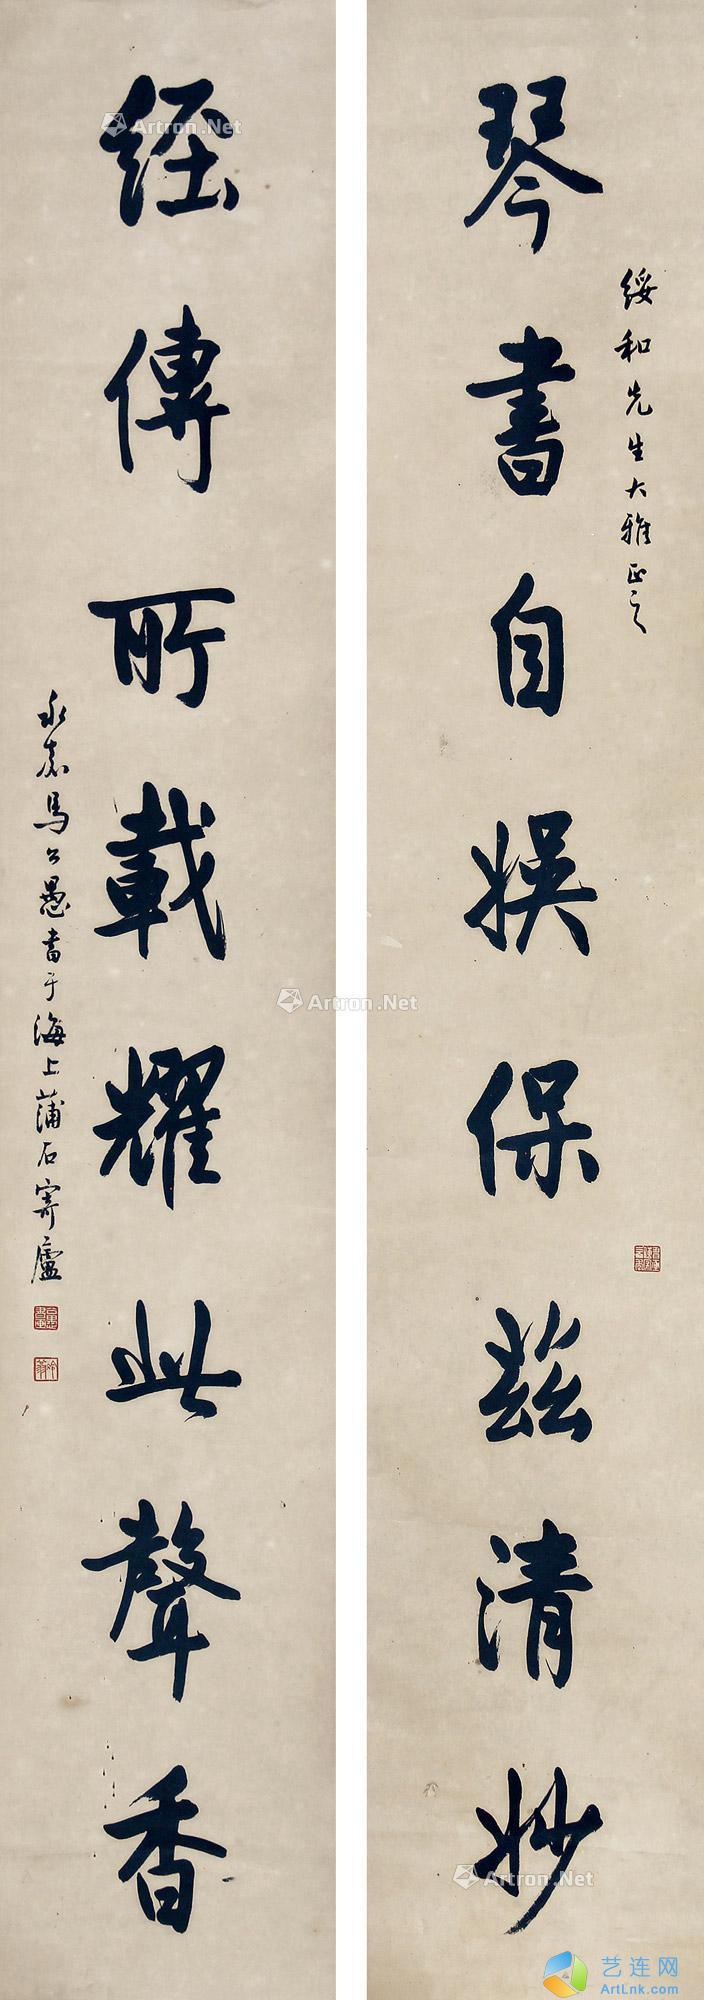 琴書自娛保茲清妙
綏和先生大雅正之
經傳所載耀此聲香
永嘉馬公愚書于海上蒲石寄廬
Artron.Net
Artron.Net
Artron.Net
Artron.Net
艺连网
ArtLink.com